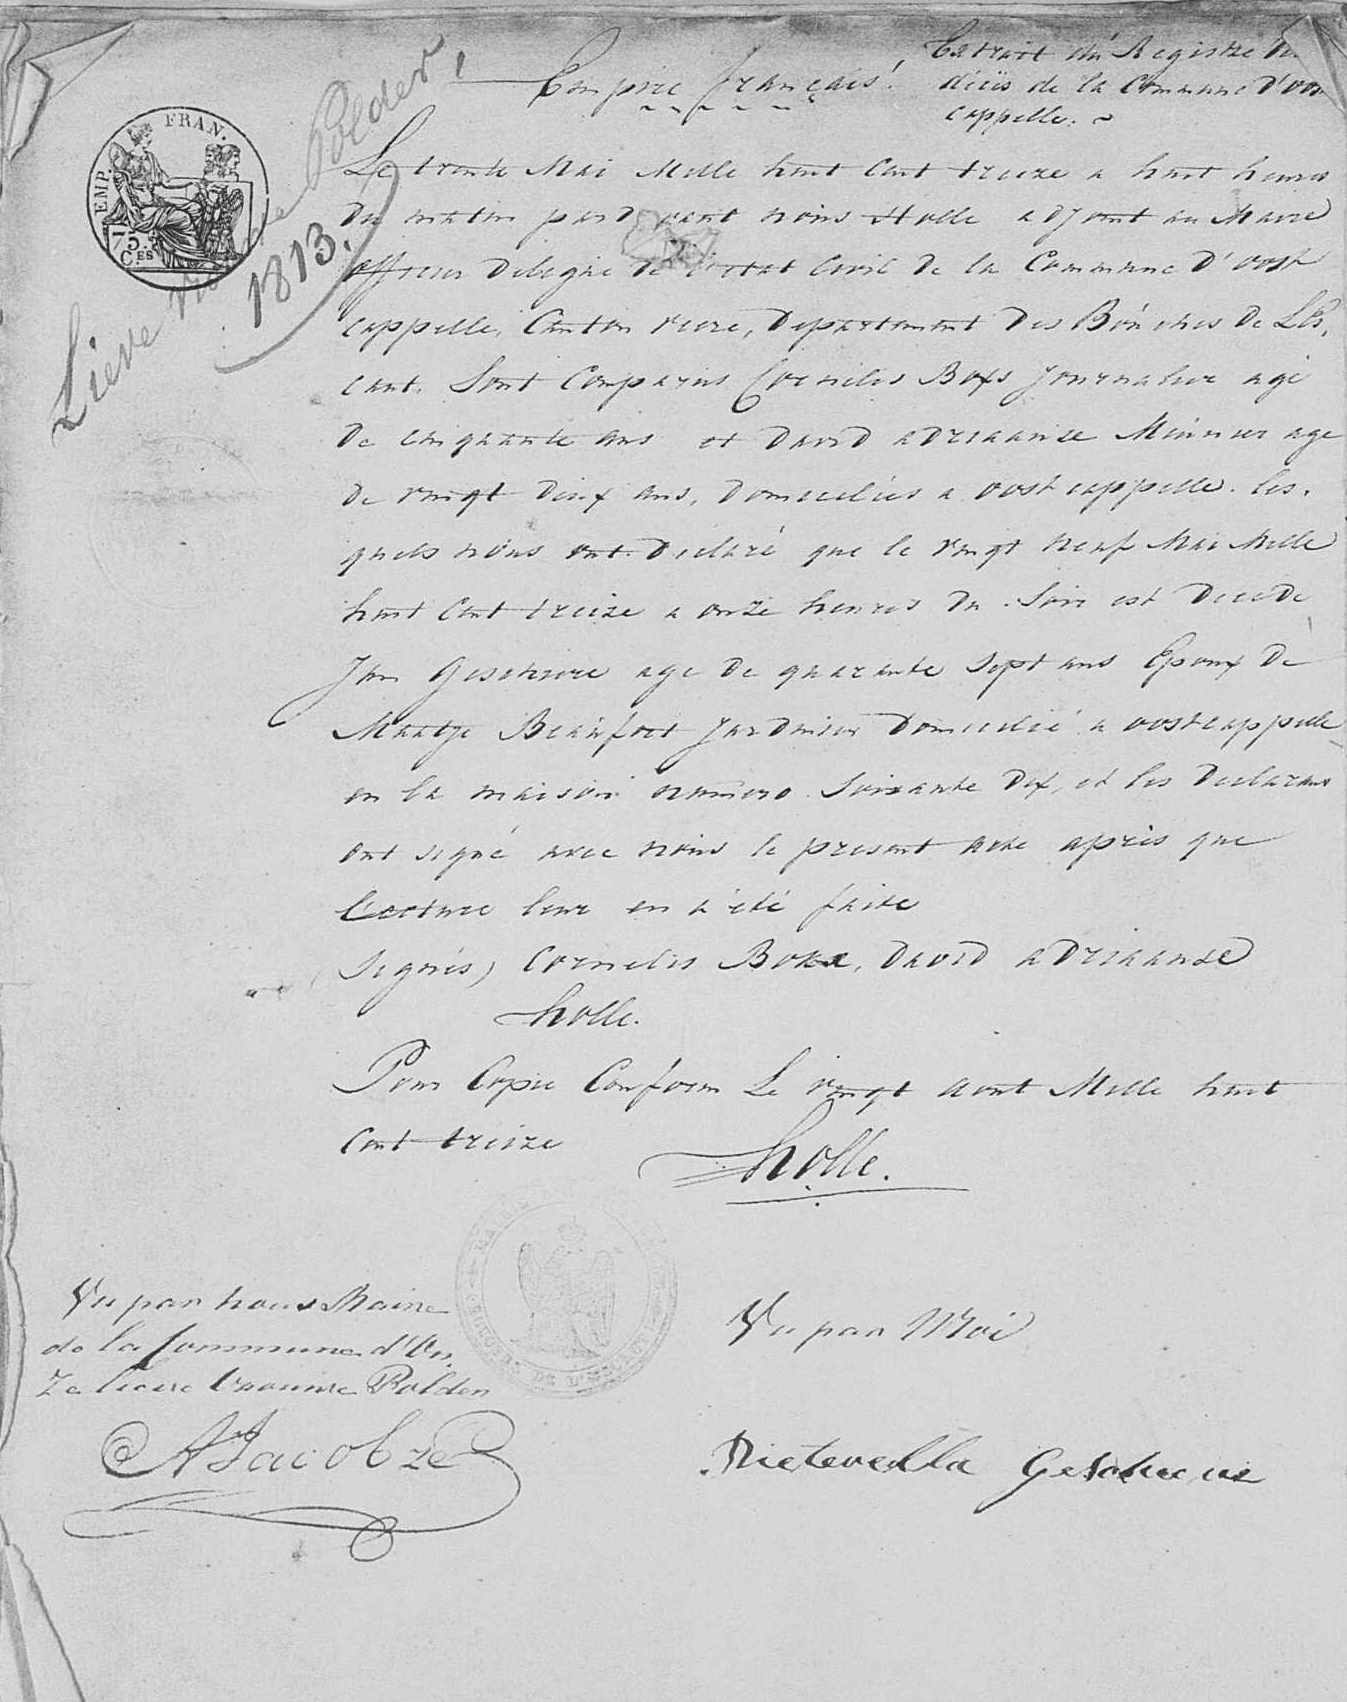 Empire français!
Extrait du Registre de
décès de la Commune d'Oost
cappelle.
Lieve Vrouwe Polder,
1813.
EMP. FRAN.
75.
C.ES
Le trente Mai Mille huit Cent treize a huit heures
du matin pardevant nous Holle adjoint au Maire
officier Delegué de l'etat Civil de la Commune D'oost
cappelle, Canton veere, Departement Des Bouches De L'Es,
caut. Sont Comparus Cornelis Boxs Journalier agé
De cinquante ans et David adriaanse Meunier age
de vingt Deux ans, Domiciliés a oostcappelle. les,
quels nous ont Declaré que le vingt neuf Mai Mille
huit Cent treize a onze heures Du Soir est Decede
Jan Geschiere age De quarante Sept ans Epoux De
Maatje Beaufort Jardinier Domicilié a oostcappelle
en la maison numero Soixante Dix, et les Declarans
ont signé avec nous le present acte après que
lecture leur en a été faite
Signés) Cornelis Boxe, David adriaanse
Holle.
Pour Copie Conform Le vingt Aout Mille huit
Cent treize
Holle.
Vu par nous Maire
de la Commune d'On
ze lieve Vrouwe Polder
AJacobze
Vu par Moi
Pieternella Geschiere